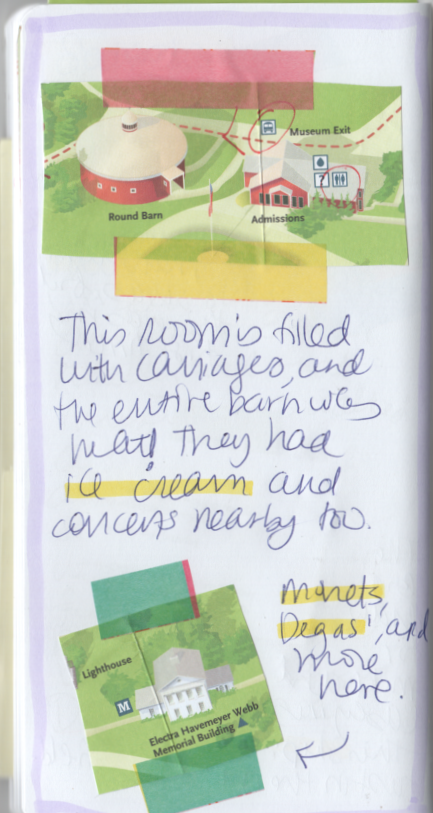 Museum Exit
?
Round Barn
Admissions
This room is filled
with carriages, and
the entire barn was
neat! They had
ice cream and
concerts nearby too.
Monets,
Degas', and
more
here.
Lighthouse
M
Electra Havemeyer Webb
Memorial Building